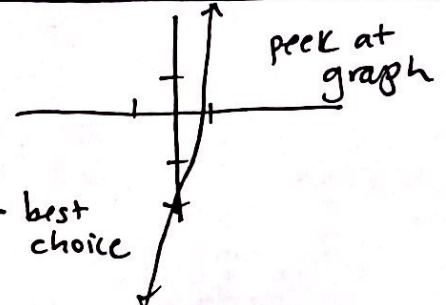 peek at
graph
- best
choice